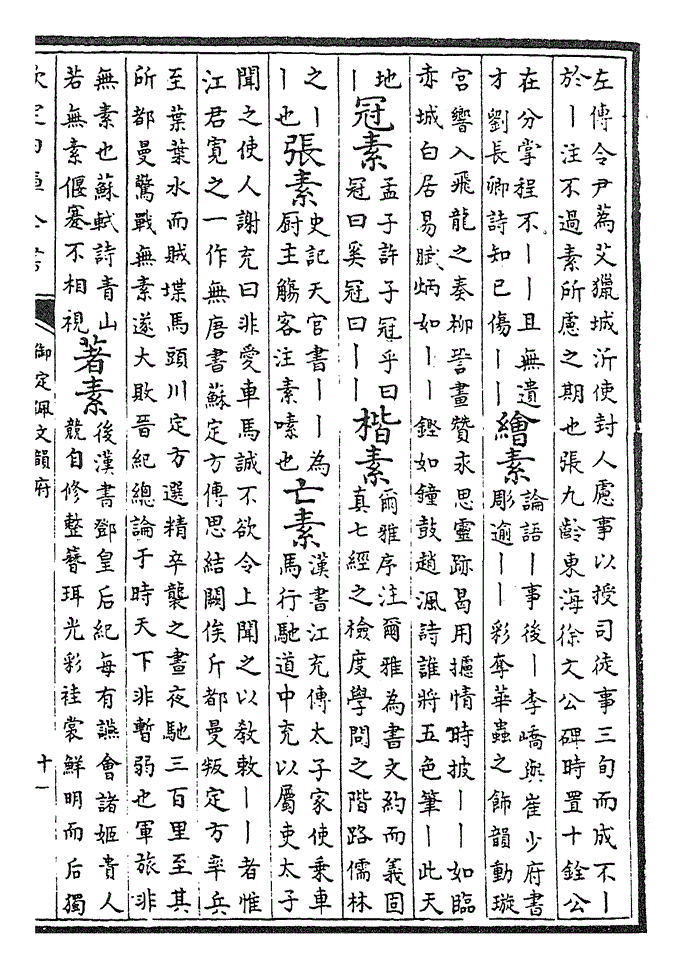 左傳令尹蒍艾獵城沂使封人慮事以授司徒事三旬而成不丨
於丨注不過素所慮之期也張九齡東海徐文公碑時置十銓公
在分掌程不丨丨且無遺
才劉長卿詩知已傷丨丨
繪素
論語丨事後丨李嶠與崔少府書
彫逾丨丨彩奪華蟲之飾韻動璇
宮響入飛龍之奏柳䛒畫贊求思靈跡曷用攄情時披丨丨如臨
赤城白居易賦炳如丨丨鏗如鐘鼓趙渢詩誰將五色筆丨此天
地
丨
冠素
孟子許子冠乎曰
冠曰奚冠曰丨丨
楷素
爾雅序注爾雅為書文約而義固
真七經之檢度學問之階路儒林
之丨
丨也
張素
史記天官書丨丨為
厨主觴客注素嗉也
亡素
漢書江充傳太子家使乘車
馬行馳道中充以屬吏太子
聞之使人謝充曰非愛車馬誠不欲令上聞之以教敕丨丨者惟
江君寬之一作無唐書蘇定方傳思結闕俟斤都曼叛定方率兵
至葉葉水而賊堞馬頭川定方選精卒襲之晝夜馳三百里至其
所都曼驚戰無素遂大敗晉紀總論于時天下非暫弱也軍旅非
無素也蘇軾詩青山
若無素偃蹇不相視
著素
後漢書鄧皇后紀每有讌會諸姬貴人
競自修整簪珥光彩袿裳鮮明而后獨
欽定四庫全書
御定佩文韻府
十一